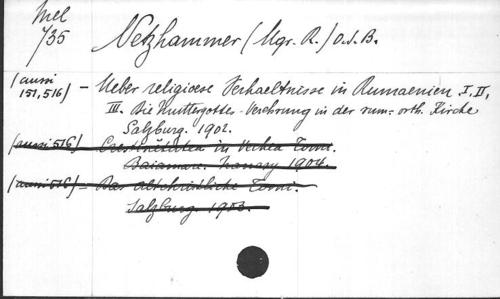 Mel
735
Netzhammer (Mgr. R.) O.S.B.
(aussi
151, 516) - Ueber religioese Verhaeltnisse in Rumaenien I, II,
III. Die Muttergottes-Verehrung in der rum.-orth. Kirche
Salzburg. 1902.
(aussi 516) in Vechea Tomi.
1904.
(aussi 516) - Das altchristliche Tomi.
Salzburg. 1903.